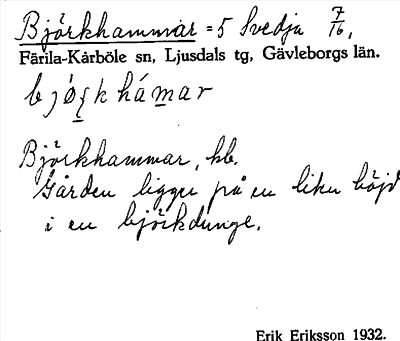 Björkhammar = 5 Svedja 7/16,
Färila-Kårböle sn, Ljusdals tg, Gävleborgs län.
bjórkhámar
Björkhammar, hb.
Gården ligger på en liten höjd
i en björkdunge.
Erik Eriksson 1932.